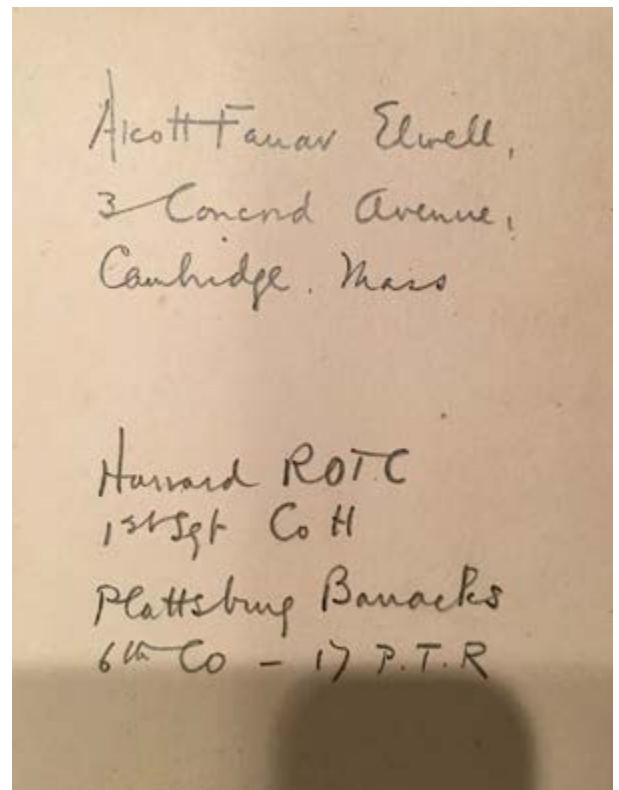 Alcott Farrar Elwell,
3 Concord Avenue,
Cambridge. Mass
Harvard ROTC
1st Sgt Co H
Plattsburg Barracks
6th Co - 17 P.T.R